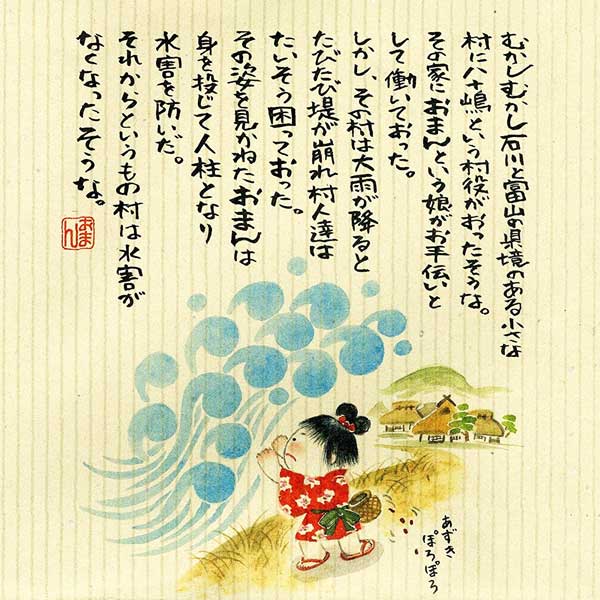 むかしむかし石川と富山の県境のある小さな
村に八十嶋という村役がおったそうな。
その家におまんという娘がお手伝いと
して働いておった。
しかし、その村は大雨が降ると
たびたび堤が崩れ村人達は
たいそう困っておった。
その姿を見かねたおまんは
身を投じて人柱となり
水害を防いだ。
それからというもの村は水害が
なくなったそうな。
おまん
あずき
ぽろぽろ